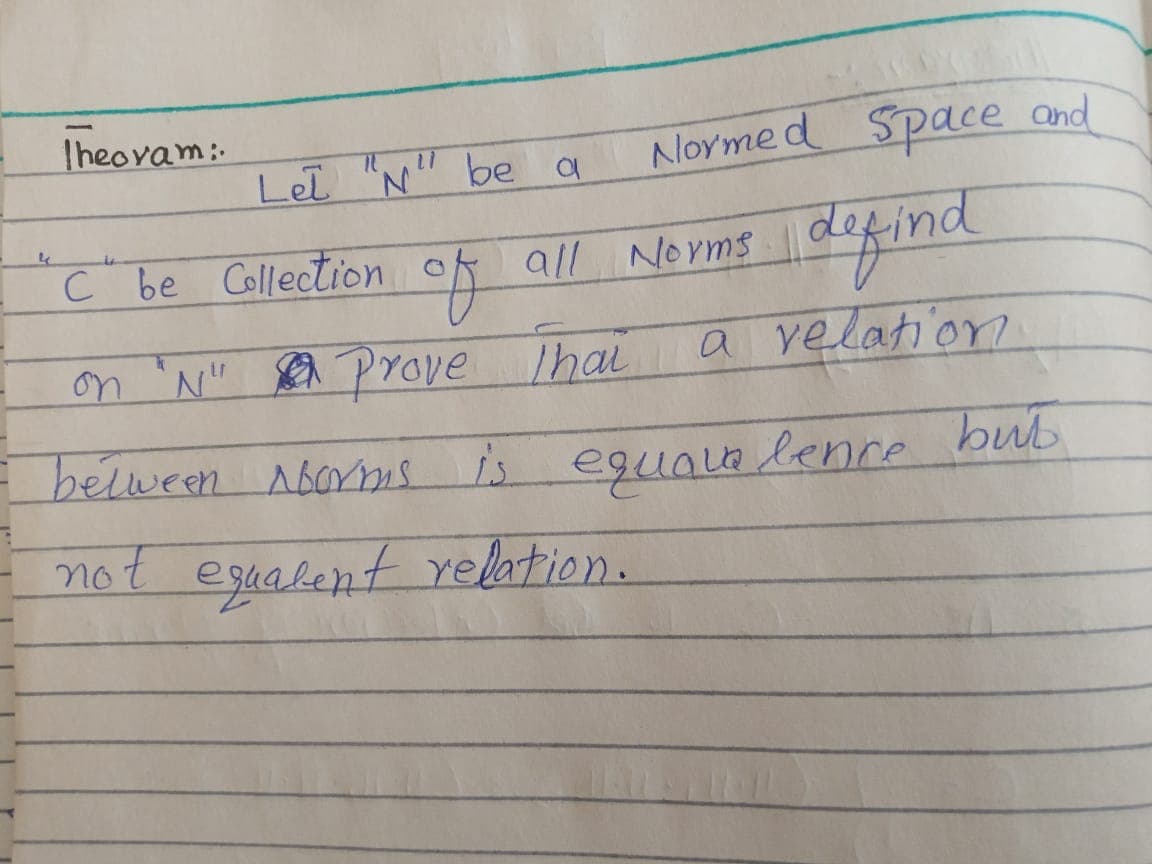 Theoram:.
Let "N" be a Normed space and
"C" be Collection of all Norms defind
on "N" prove that a relation
between Norms is equavalence but
not equalent relation.